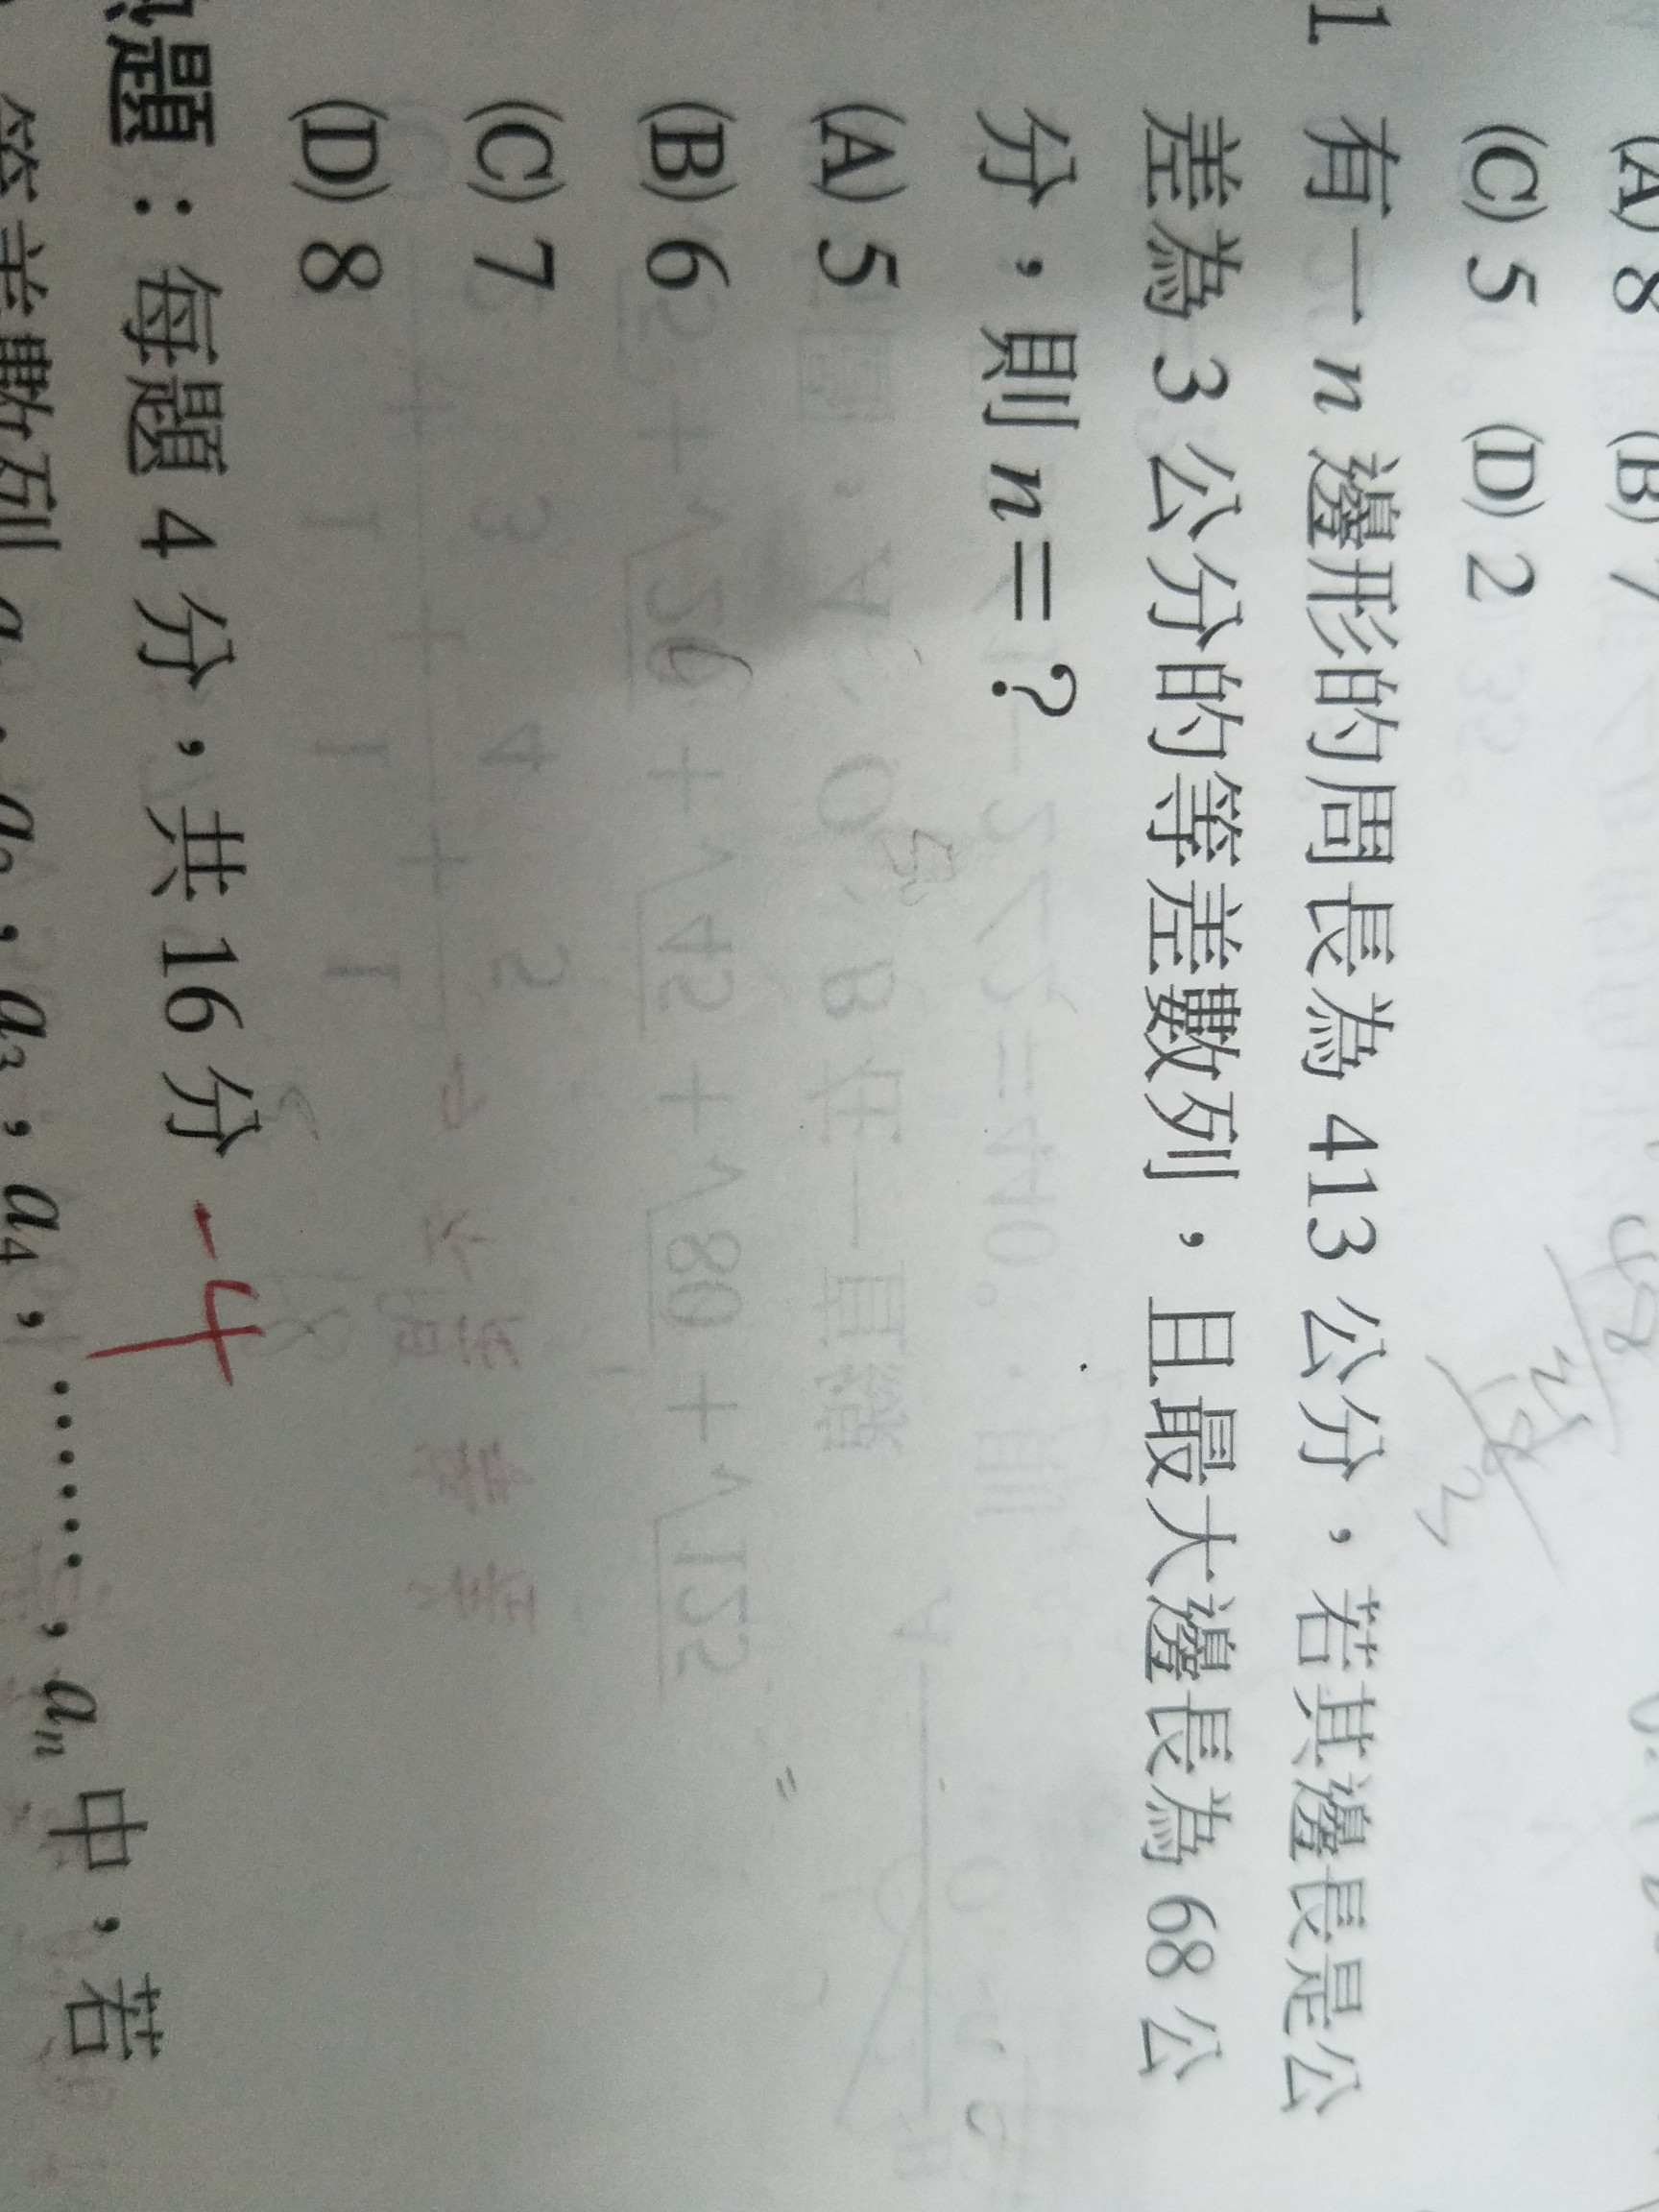 (A) 8 (B) 7
(C) 5 (D) 2
1 有一 n 邊形的周長為 413 公分，若其邊長是公
差為 3 公分的等差數列，且最大邊長為 68 公
分，則 n＝？
(A) 5
(B) 6
(C) 7
(D) 8
題：每題 4 分，共 16 分 -4
等差數列 a₁，a₂，a₃，a₄，……，aₙ 中，若